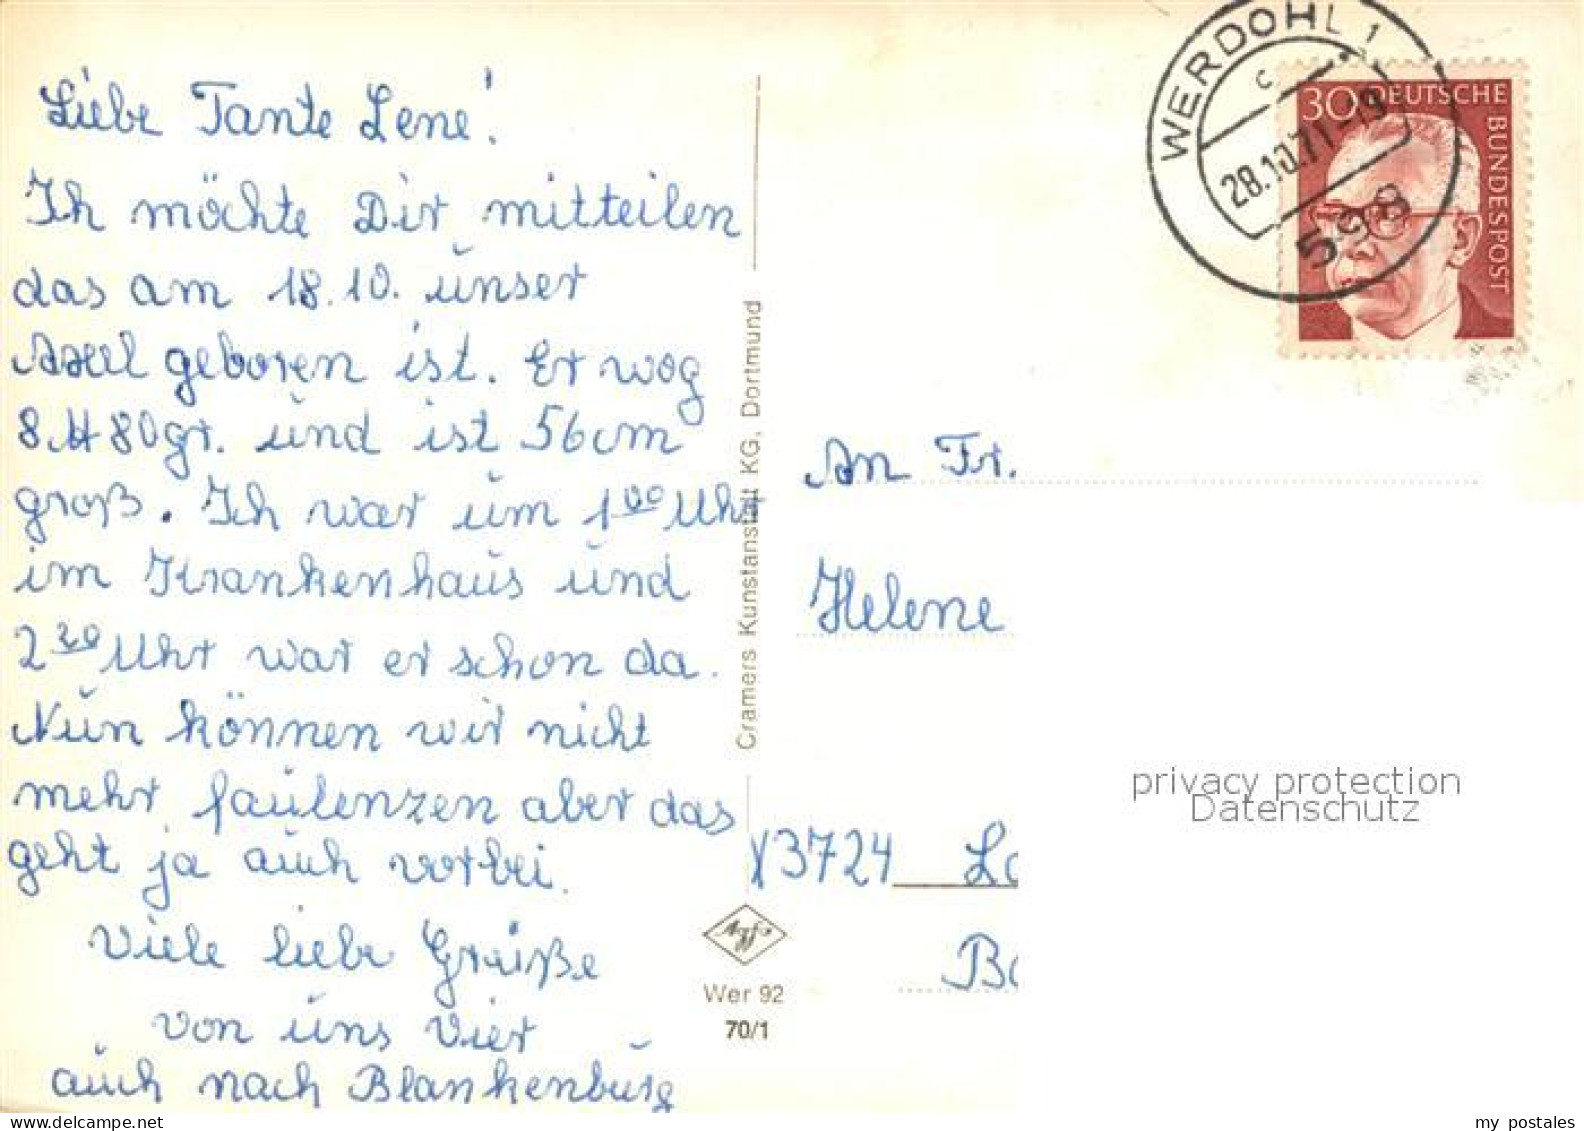 Liebe Tante Lene!
Ich möchte Dir mitteilen
das am 18.10. unser
Axel geboren ist. Er wog
8 ℔ 80gr. und ist 56cm
groß. Ich war um 1⁰⁰ Uhr
im Krankenhaus und
2³⁰ Uhr war er schon da.
Nun können wir nicht
mehr faulenzen aber das
geht ja auch vorbei.
Viele liebe Grüße
von uns Vier
auch nach Blankenburg
Cramers Kunstanstalt KG, Dortmund
Wer 92
70/1
WERDOHL 1
c
28.10.71-19
598
30 DEUTSCHE
BUNDESPOST
An Fr.
Helene
3724 La
Ba
privacy protection
Datenschutz
www.delcampe.net
my postales